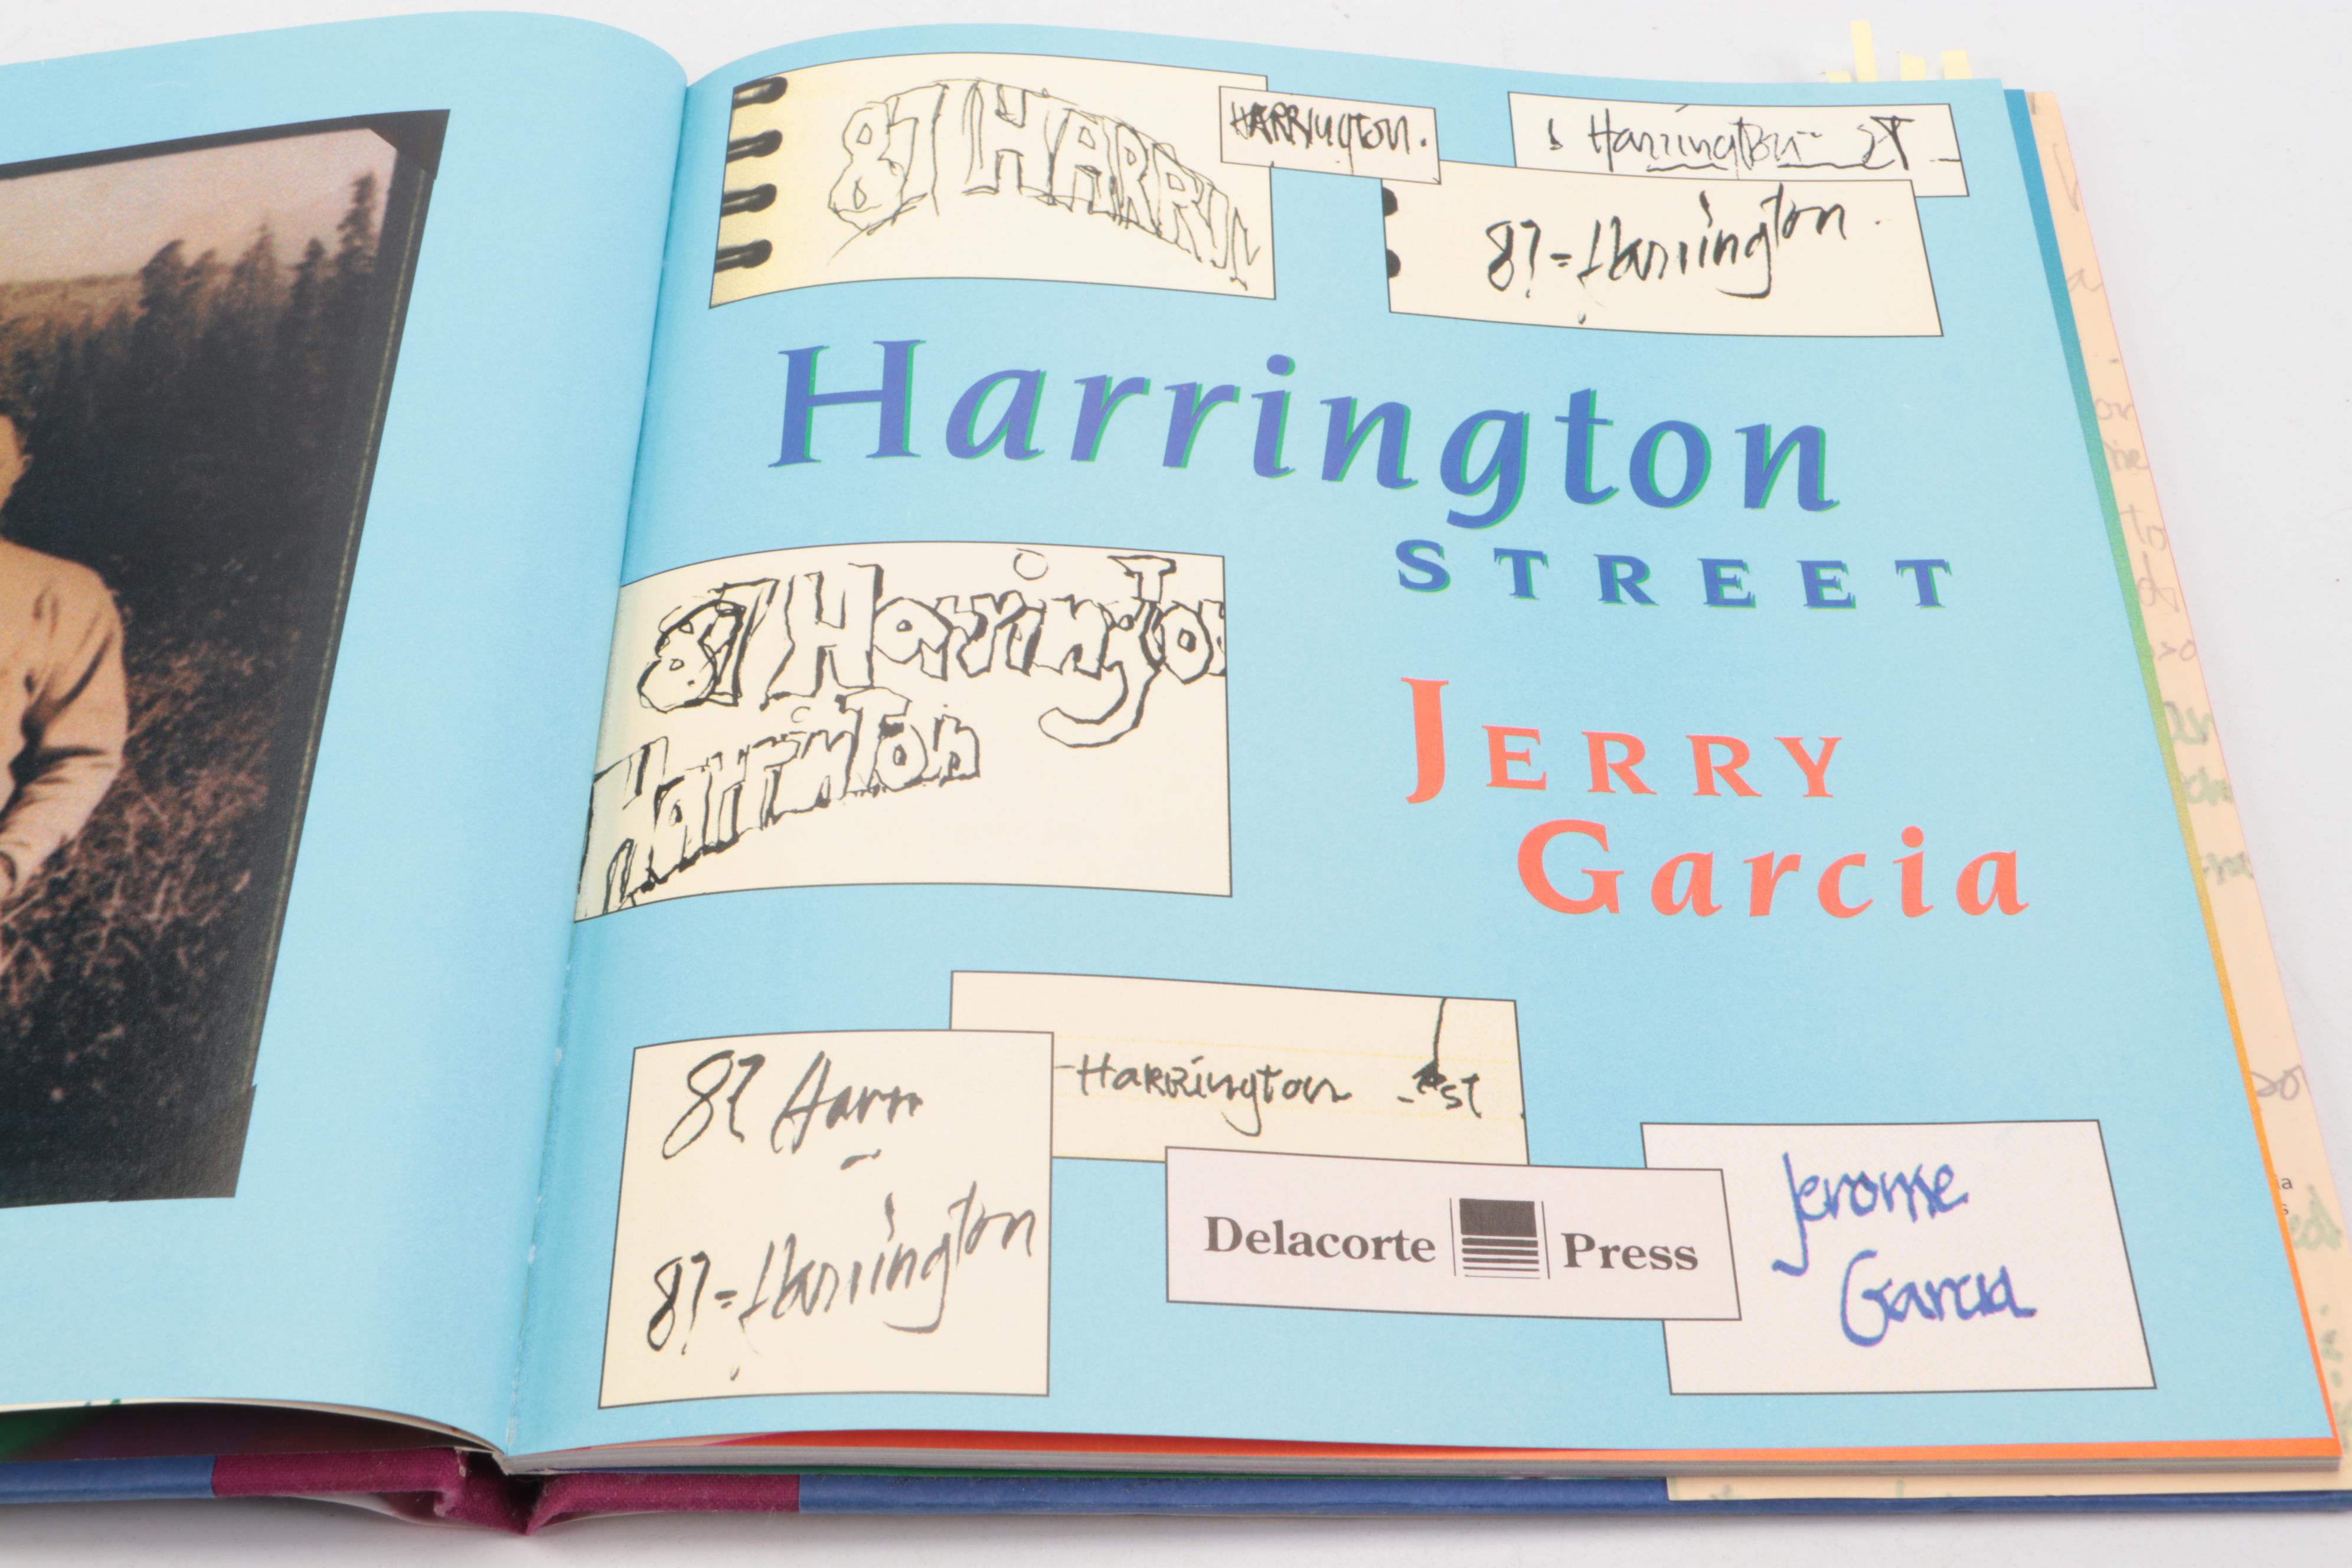 87 HARRIN
HARRington.
Harrington ST
87 - Harrington.
Harrington
STREET
87 Harrington
Harrinton
JERRY
Garcia
Harrington st
87 Harr
87 - Harrington
Delacorte Press
Jerome
Garcia